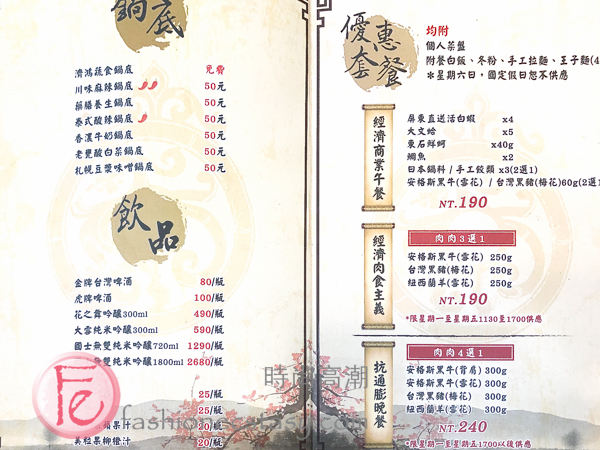 鍋底
濟鴻蔬食鍋底 免費
川味麻辣鍋底 50元
藥膳養生鍋底 50元
泰式酸辣鍋底 50元
香濃牛奶鍋底 50元
老甕酸白菜鍋底 50元
札幌豆漿味噌鍋底 50元
飲品
金牌台灣啤酒 80/瓶
虎牌啤酒 100/瓶
花之露吟釀300ml 490/瓶
大雪純米吟釀300ml 590/瓶
國士無雙純米吟釀720ml 1290/瓶
無雙純米吟釀1800ml 2680/瓶
25/瓶
25/瓶
蘋果汁 20/瓶
美粒果柳橙汁 20/瓶
優惠套餐
均附
個人菜盤
附餐白飯、冬粉、手工拉麵、王子麵(4
＊星期六日，國定假日恕不供應
經濟商業午餐
屏東直送活白蝦 x4
大文蛤 x5
東石鮮蚵 x40g
鯛魚 x2
日本鍋料 / 手工餃類 x3(2選1)
安格斯黑牛(雪花) / 台灣黑豬(梅花)60g(2選1
NT.190
經濟肉食主義
肉肉3選1
安格斯黑牛(雪花) 250g
台灣黑豬(梅花) 250g
紐西蘭羊(雪花) 250g
NT.190
*限星期一至星期五1130至1700供應
抗通膨晚餐
肉肉4選1
安格斯黑牛(背肩) 300g
安格斯黑牛(雪花) 300g
台灣黑豬(梅花) 300g
紐西蘭羊(雪花) 300g
NT.240
*限星期一至星期五1700以後供應
時尚高潮
fashionecstasy.com